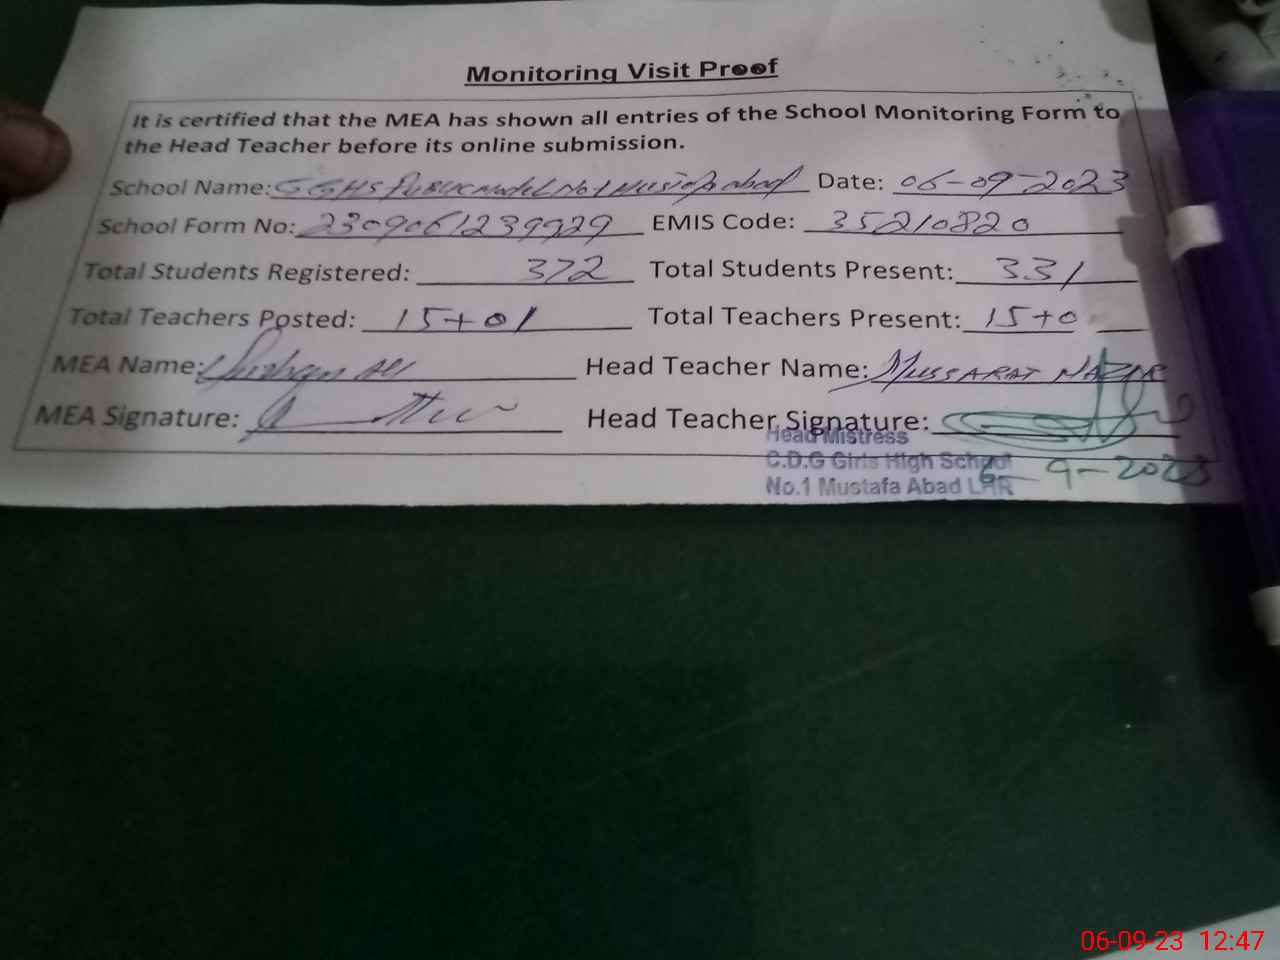 Monitoring Visit Proof
It is certified that the MEA has shown all entries of the School Monitoring Form to
the Head Teacher before its online submission.
School Name: GGHS Public Model No 1 Mustafa abad Date: 06-09-2023
School Form No: 2309061239929 EMIS Code: 35210820
Total Students Registered: 372 Total Students Present: 331
Total Teachers Posted: 15+01 Total Teachers Present: 15+0
MEA Name: Ali Head Teacher Name: MUSSARAT NAZIR
MEA Signature: Head Teacher Signature:
Head Mistress
C.D.G Girls High School
No.1 Mustafa Abad LHR
6-9-2023
06-09-23 12:47